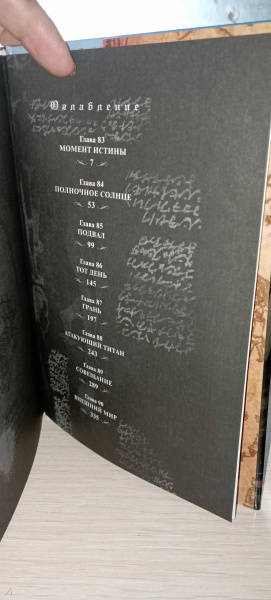 Оглавление
Глава 83
МОМЕНТ ИСТИНЫ
7
Глава 84
ПОЛНОЧНОЕ СОЛНЦЕ
53
Глава 85
ПОДВАЛ
99
Глава 86
ТОТ ДЕНЬ
145
Глава 87
ГРАНЬ
197
Глава 88
АТАКУЮЩИЙ ТИТАН
243
Глава 89
СОВЕЩАНИЕ
289
Глава 90
ВНЕШНИЙ МИР
335